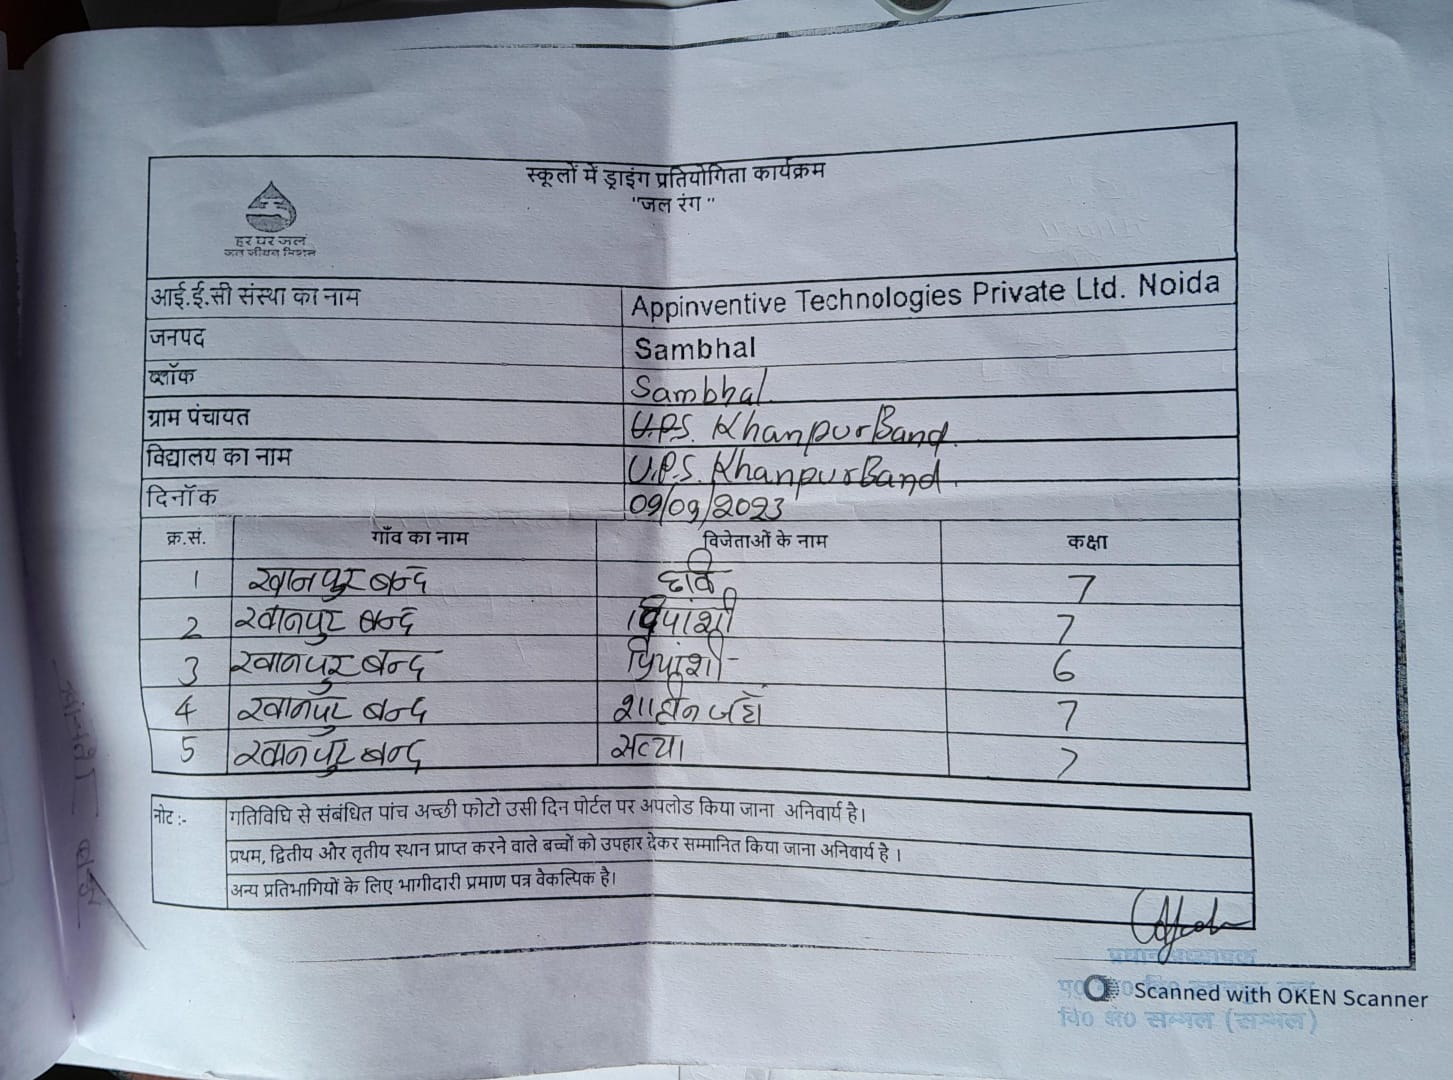 स्कूलों में ड्राइंग प्रतियोगिता कार्यक्रम
"जल रंग"
हर घर जल
जल जीवन मिशन
आई.ई.सी संस्था का नाम Appinventive Technologies Private Ltd. Noida
जनपद Sambhal
ब्लॉक Sambhal
ग्राम पंचायत U.P.S. Khanpur Band.
विद्यालय का नाम U.P.S. Khanpur Band.
दिनॉक 09/09/2023
क्र.सं. गाँव का नाम विजेताओं के नाम कक्षा
1 खानपुर बन्द 7
2 खानपुर बन्द 7
3 खानपुर बन्द प्रियांशी 6
4 खानपुर बन्द शाहीन जहाँ 7
5 खानपुर बन्द सत्या 7
नोट :- गतिविधि से संबंधित पांच अच्छी फोटो उसी दिन पोर्टल पर अपलोड किया जाना अनिवार्य है।
प्रथम, द्वितीय और तृतीय स्थान प्राप्त करने वाले बच्चों को उपहार देकर सम्मानित किया जाना अनिवार्य है ।
अन्य प्रतिभागियों के लिए भागीदारी प्रमाण पत्र वैकल्पिक है।
प्रधानाध्यापक
Scanned with OKEN Scanner
वि० क्षे० सम्भल (सम्भल)